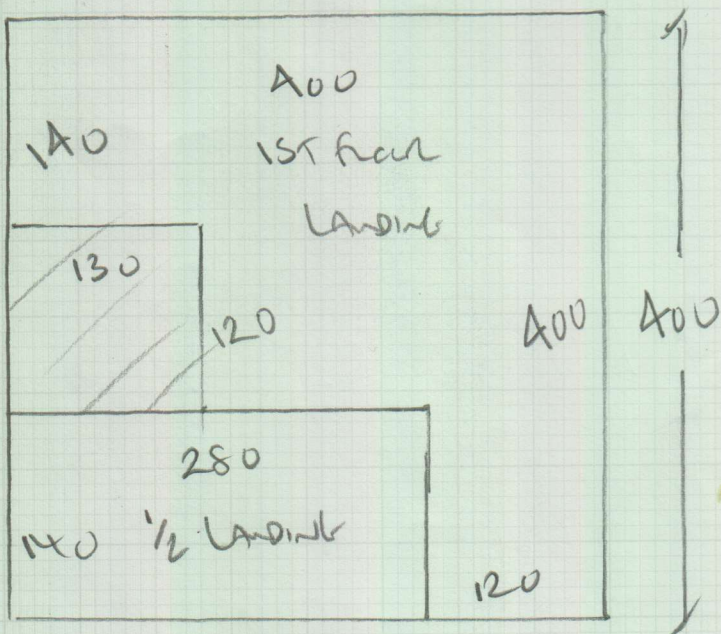 400
140
1ST FLOOR
LANDING
130
120
400
400
280
140 ½ LANDING
120